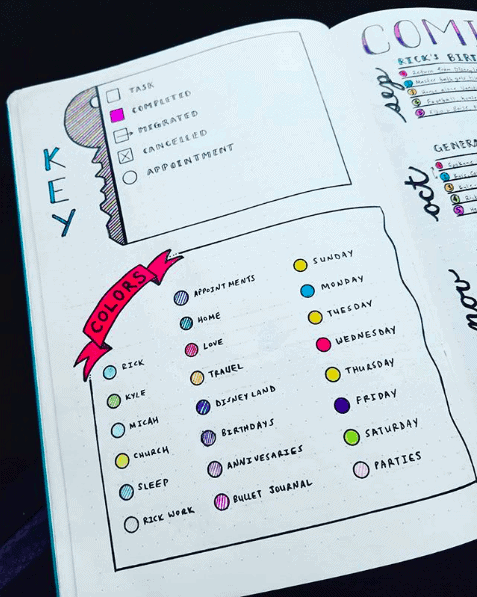 KEY
TASK
COMPLETED
MIGRATED
CANCELLED
APPOINTMENT
COLORS
RICK
KYLE
MICAH
CHURCH
SLEEP
RICK WORK
APPOINTMENTS
HOME
LOVE
TRAVEL
DISNEYLAND
BIRTHDAYS
ANNIVESARIES
BULLET JOURNAL
SUNDAY
MONDAY
TUESDAY
WEDNESDAY
THURSDAY
FRIDAY
SATURDAY
PARTIES
COMI
RICK'S BIRT
sep
GENERA
oct
nov